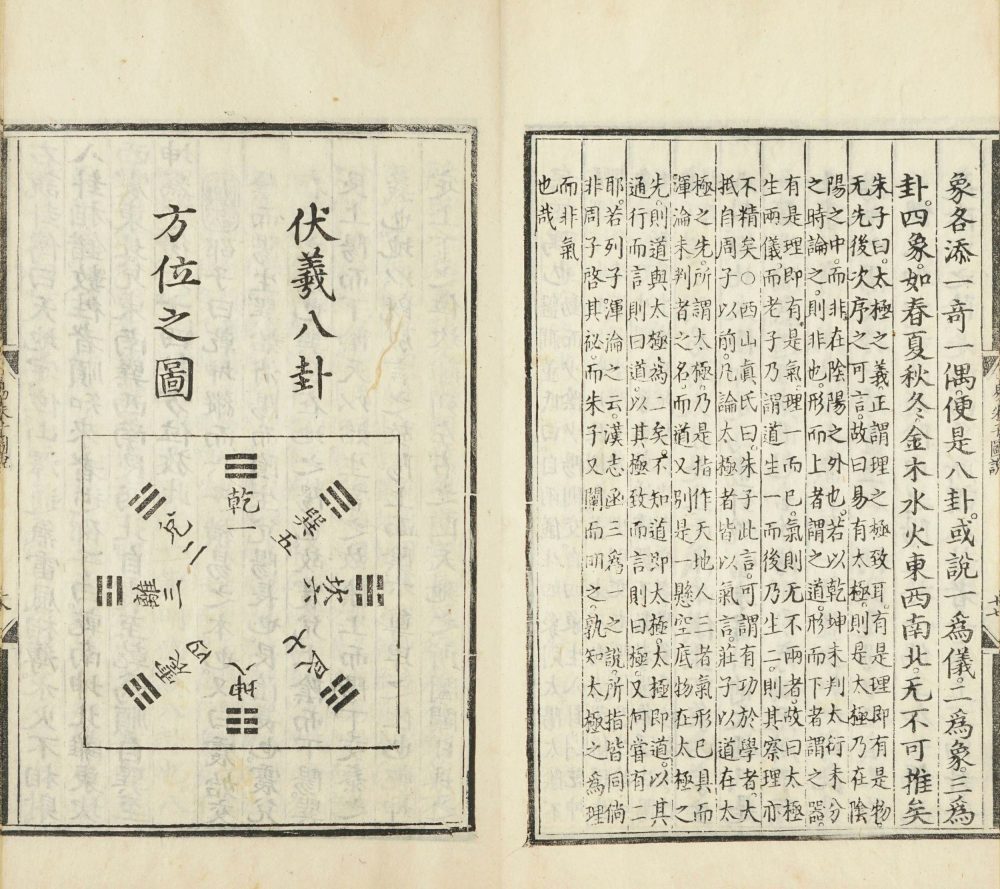 象各添一奇一偶。便是八卦。或說一爲儀。二爲象。三爲
卦。四象。如春夏秋冬。金木水火。東西南北。无不可推矣
朱子曰。太極之義。正謂理之極致耳。有是理。即有是物。
无先後次序之可言。故曰易有太極。則是太極乃在陰
陽之中。而非在陰陽之外也。若以乾坤未判。大衍未分
之時論之。則非也。形而上者謂之道。形而下者謂之器。
有是理即有是氣。理一而已。氣則无不兩者。故曰太極
生兩儀。而老子乃謂道生一而後乃生二。則其察理亦
不精矣。○西山眞氏曰。朱子此言。可謂有功於學者。大
抵自周子以前。凡論太極者皆以氣言。莊子以道在太
極之先。所謂太極乃是指作天地人三者氣形已具而
渾淪未判者之名。而道又別是一懸空底物。在太極之
先。則道與太極爲二矣。不知道即太極。太極即道。以其
通行而言則曰道。以其極致而言則曰極。又何嘗有二
耶。若列子渾淪之云。漢志函三爲一之說。所指皆同。倘
非周子啓其祕。而朱子又闡而明之。孰知太極之爲理
而非氣
也哉
伏羲八卦
方位之圖
乾一
兌二
離三
震四
巽五
坎六
艮七
坤八